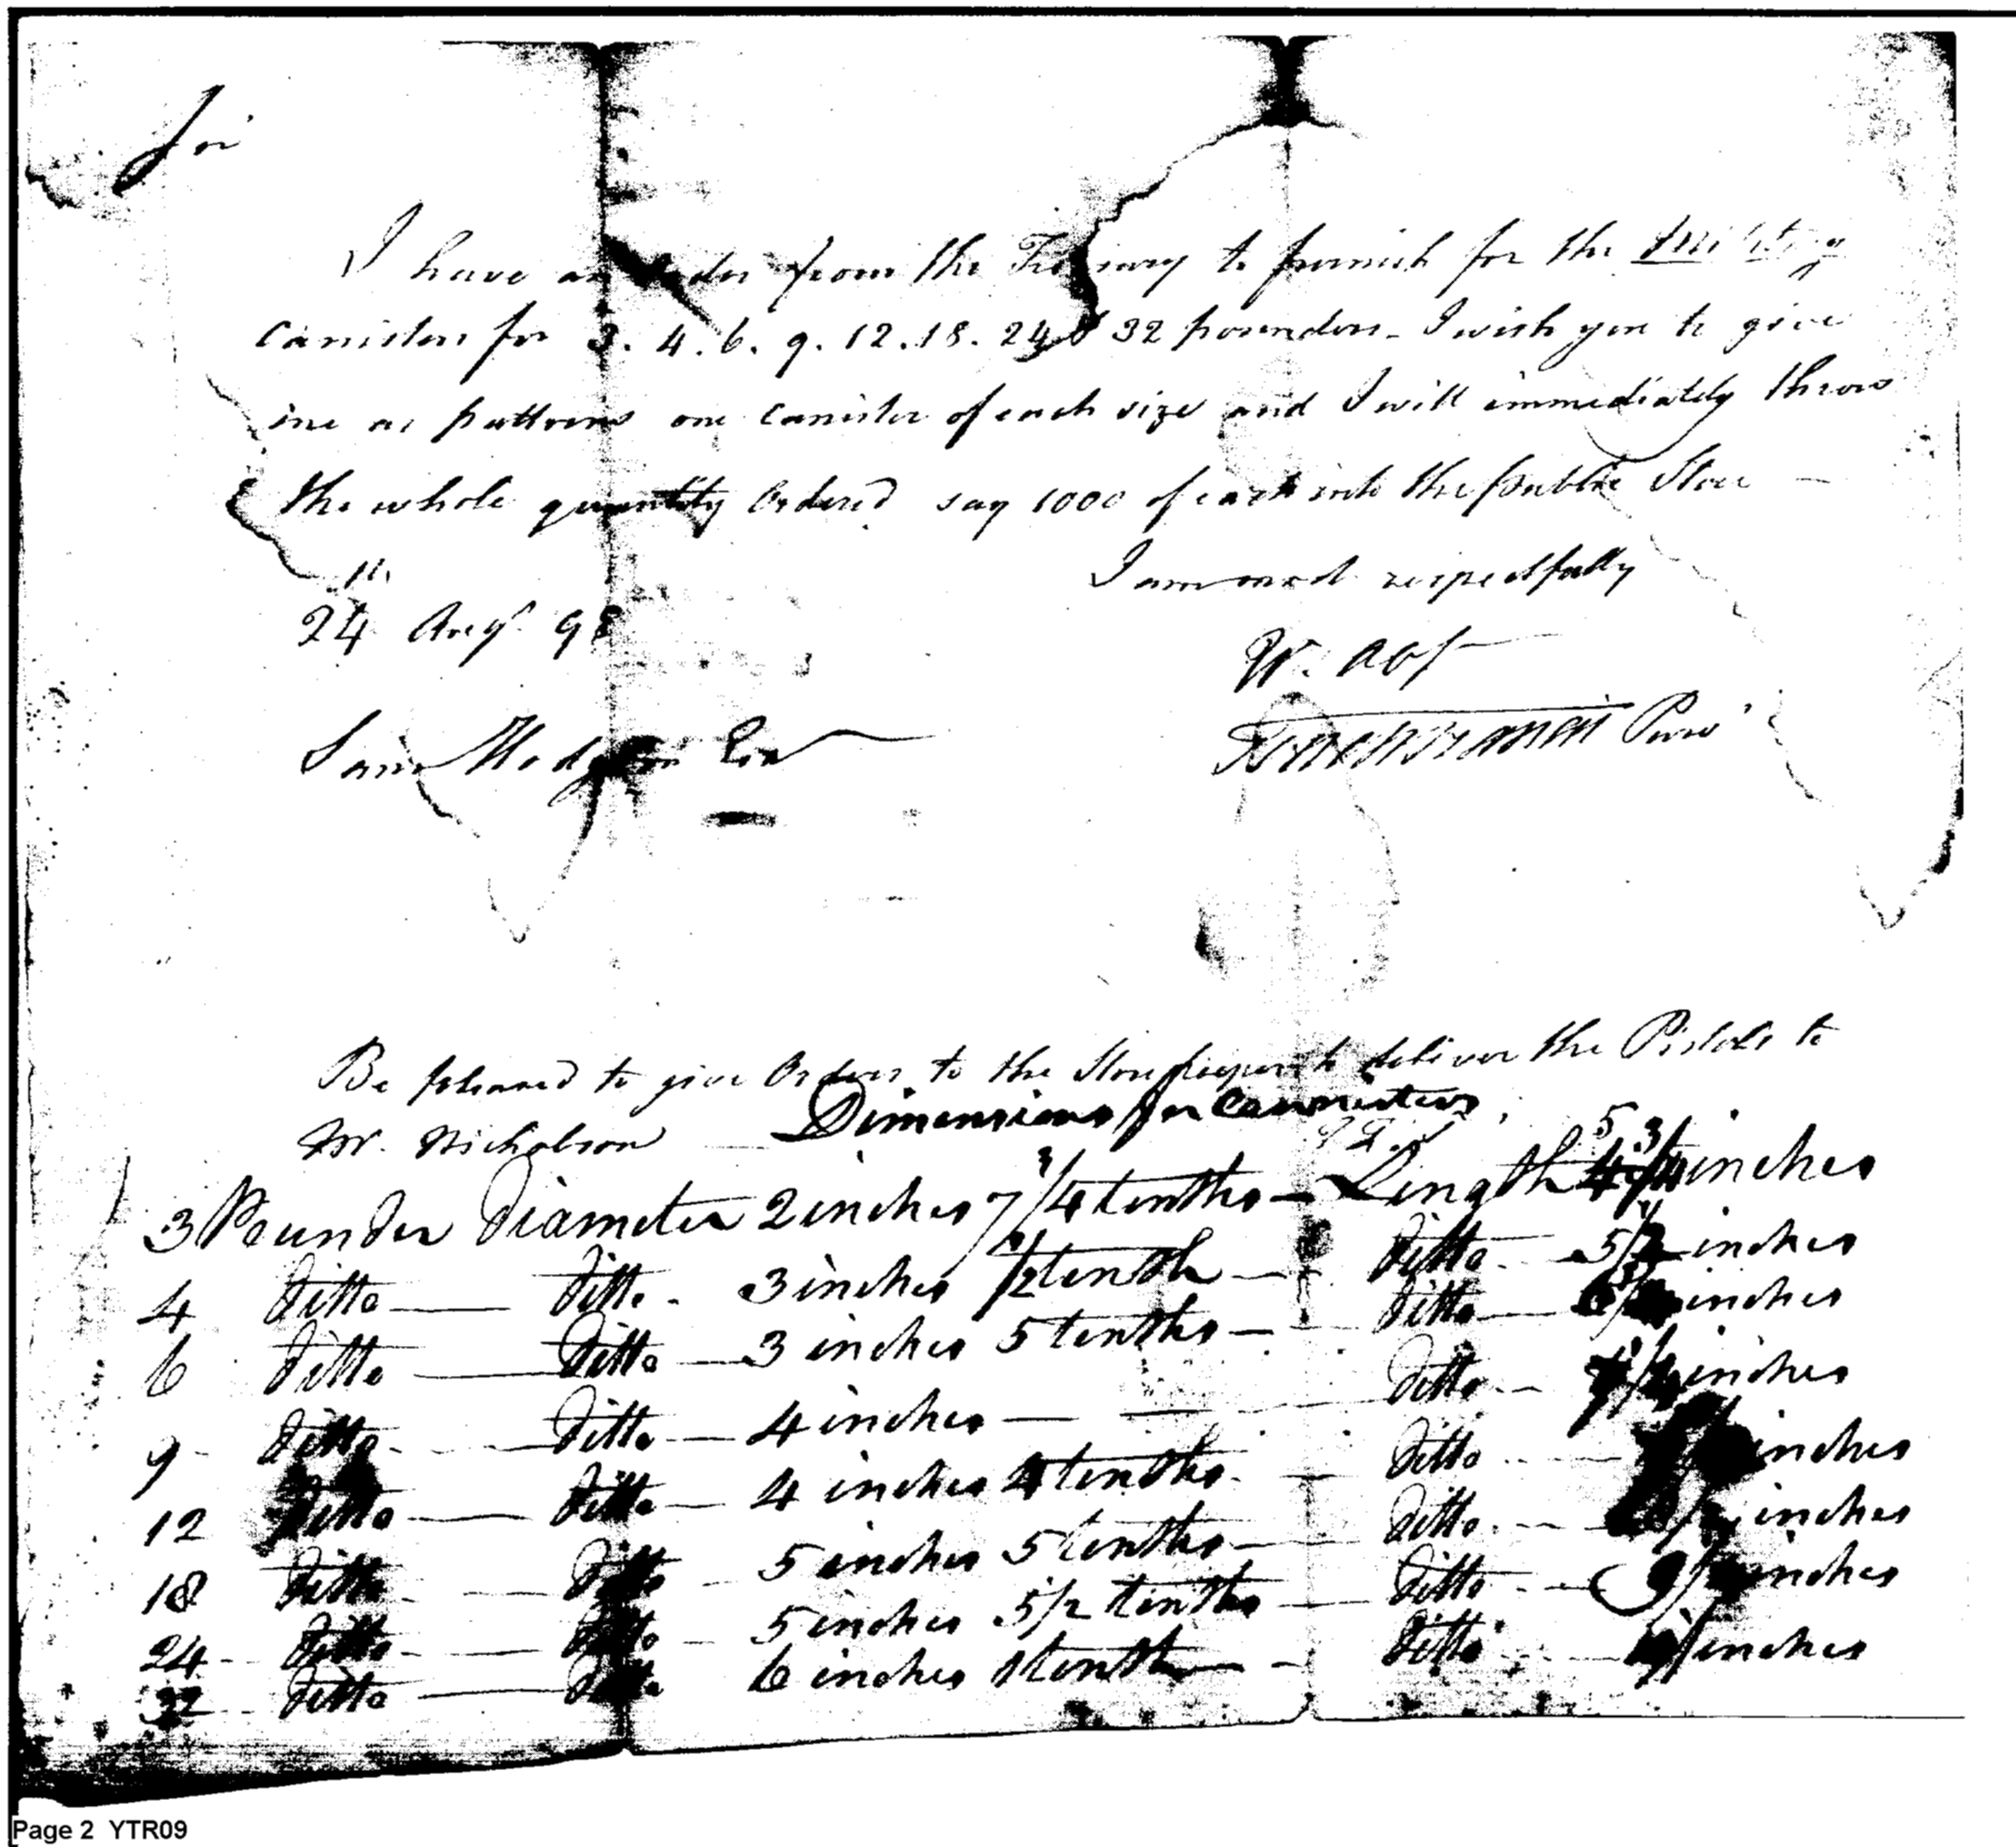 Sir
I have an order from the Treasury to furnish for the Military
Canisters for 3. 4. 6. 9. 12. 18. 24 & 32 pounders – I wish you to give
me as patterns one Canister of each size and I will immediately throw
the whole quantity Ordered say 1000 of each into the public Store –
I am most respectfully
24th Augt 98
W.
Sam Hodgdon Esqr
Be pleased to give Orders to the Storekeeper to deliver the Pistols to
Mr. Nicholson
Dimensions for Cannisters
3 Pounder Diameter 2 inches 7 3/4 tenths – Length 5 3/4 inches
4 Ditto — Ditto - 3 inches 1/2 tenth — Ditto — 5 1/2 inches
6 Ditto — Ditto — 3 inches 5 tenths — Ditto — inches
9 Ditto — Ditto — 4 inches — — Ditto — inches
12 Ditto — Ditto — 4 inches 4 tenths — Ditto — inches
18 Ditto — Ditto — 5 inches 5 tenths — Ditto — inches
24 Ditto — Ditto — 5 inches 5 1/2 tenths — Ditto — 9 inches
32 Ditto — Ditto 6 inches 1 tenth — Ditto — inches
Page 2 YTR09